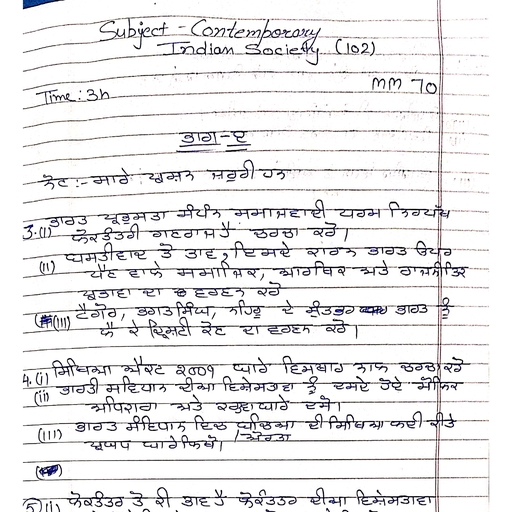 Subject - Contemporary
Indian Society (102)
Time: 3h
MM 70
ਭਾਗ-ੲ
ਨੋਟ :- ਸਾਰੇ ਪ੍ਰਸ਼ਨ ਜਰੂਰੀ ਹਨ
3.(i) ਭਾਰਤ ਪ੍ਰਭੁਸਤਾ ਸੰਪੰਨ ਸਮਾਜਵਾਦੀ ਧਰਮ ਨਿਰਪੱਖ
ਲੋਕਤੰਤਰੀ ਗਣਰਾਜ ਹੈ ਚਰਚਾ ਕਰੋ।
(ii) ਤੋ ਭਾਵ, ਇਸਦੇ ਕਾਰਨ ਭਾਰਤ ਉਪਰ
ਪੈਣ ਵਾਲੇ ਸਮਾਜਿਕ, ਆਰਥਿਕ ਅਤੇ ਰਾਜਨੀਤਿਕ
ਪ੍ਰਭਾਵਾ ਦਾ ਵਰਣਨ ਕਰੋ
(iii) ਟੈਗੋਰ, ਭਗਤ ਸਿੰਘ, ਨਹਿਰੂ ਦੇ ਸੁੰਤਤਰ ਭਾਰਤ ਨੂੰ
ਲੈ ਕੇ ਦ੍ਰਿਸ਼ਟੀ ਕੋਣ ਦਾ ਵਰਣਨ ਕਰੋ।
4.(i) ਸਿਖਿਆ ਐਕਟ 2009 ਬਾਰੇ ਵਿਸਥਾਰ ਨਾਲ ਚਰਚਾ ਕਰੋ
(ii) ਭਾਰਤੀ ਸਵਿਧਾਨ ਦੀਆ ਵਿਸ਼ੇਸਤਾਵਾ ਨੂੰ ਦਸਦੇ ਹੋਏ ਮੌਲਿਕ
ਅਧਿਕਾਰਾ ਅਤੇ ਬਾਰੇ ਦਸੋ।
(iii) ਭਾਰਤ ਸੰਵਿਧਾਨ ਵਿਚ ਦੀ ਸਿਖਿਆ ਲਈ ਕੀਤੇ
ਪ੍ਰਬਧ ਬਾਰੇ ਲਿਖੋ। /ਔਰਤਾ
5(i) ਲੋਕਤੰਤਰ ਤੋ ਕੀ ਭਾਵ ਹੈ ਲੋਕਤੰਤਰ ਦੀਆ ਵਿਸ਼ੇਸਤਾਵਾ